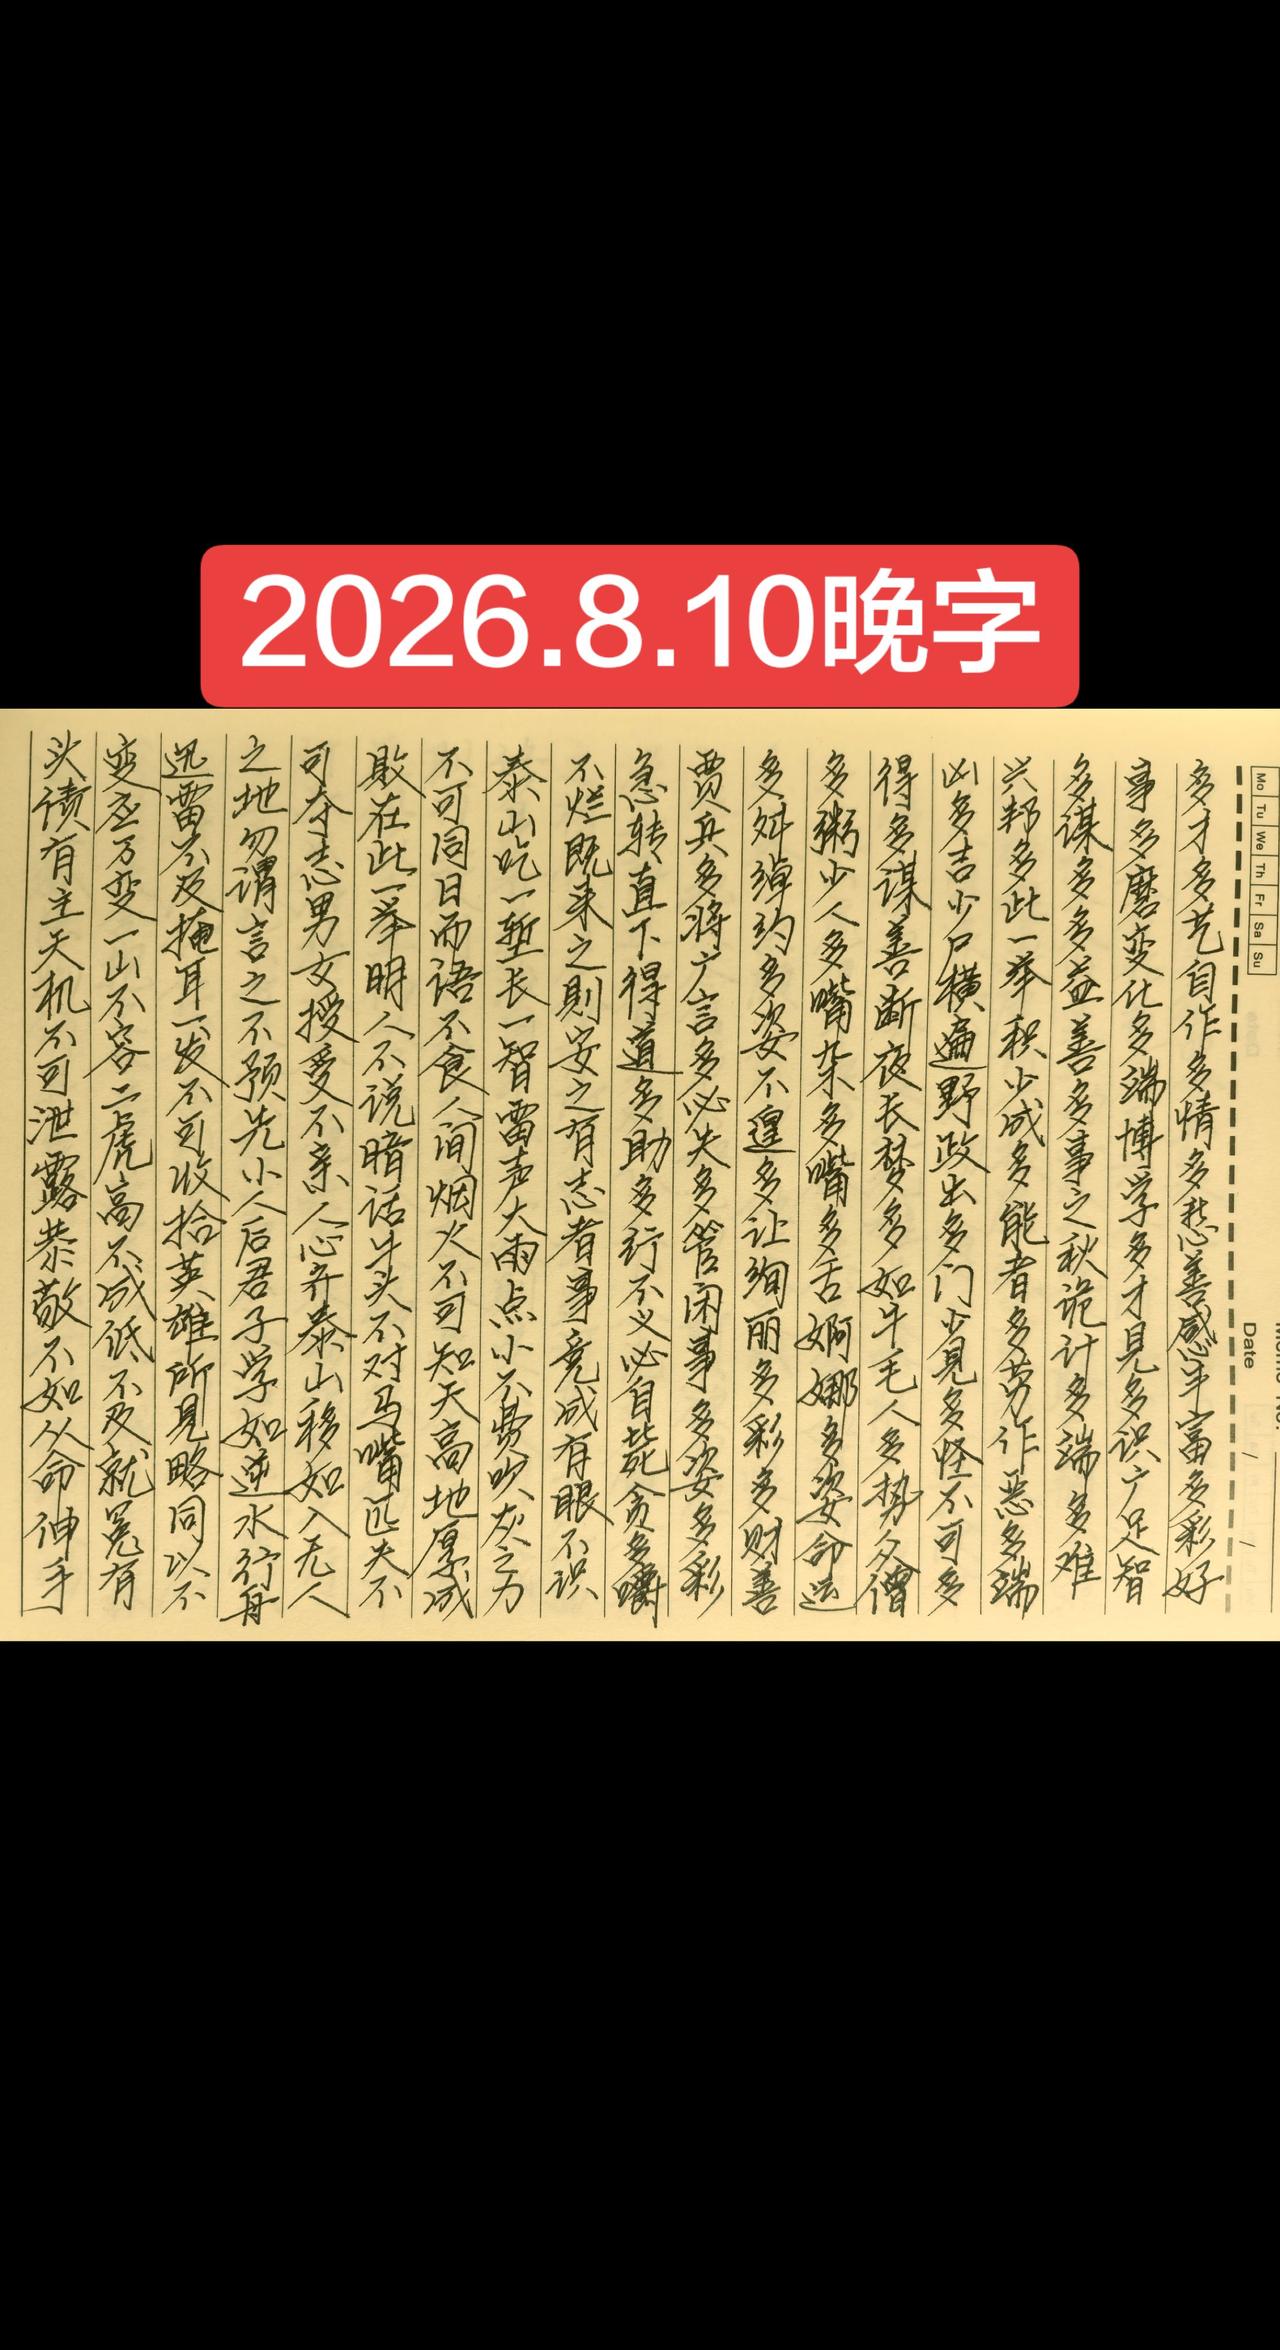 2026.8.10晚字
Mo Tu We Th Fr Sa Su
Memo No.
Date / /
多才多艺自作多情多愁善感丰富多彩好
事多磨变化多端博学多才见多识广足智
多谋多多益善多事之秋诡计多端多难
兴邦多此一举积少成多能者多劳作恶多端
凶多吉少尸横遍野政出多门少见多怪不可多
得多谋善断夜长梦多如牛毛人多势众僧
多粥少人多嘴杂多嘴多舌婀娜多姿命运
多舛绰约多姿不遑多让绚丽多彩多财善
贾兵多将广言多必失多管闲事多姿多彩
急转直下得道多助多行不义必自毙贪多嚼
不烂既来之则安之有志者事竟成有眼不识
泰山吃一堑长一智雷声大雨点小不费吹灰之力
不可同日而语不食人间烟火不可知天高地厚成
败在此一举明人不说暗话牛头不对马嘴匹夫不
可夺志男女授受不亲人心齐泰山移如入无人
之地勿谓言之不预先小人后君子学如逆水行舟
迅雷不及掩耳一发不可收拾英雄所见略同以不
变应万变一山不容二虎高不成低不及就冤有
头债有主天机不可泄露恭敬不如从命伸手